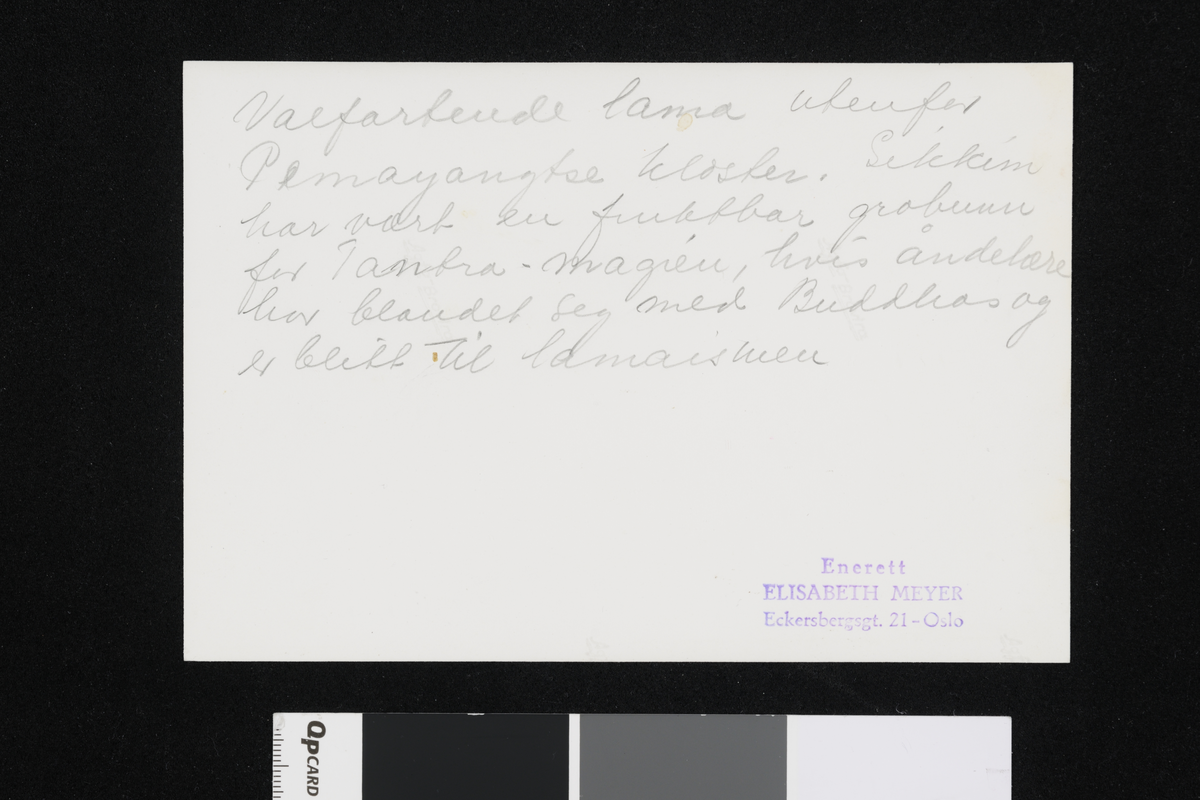 Valfartende lama utenfor
Pemayangtse kloster. Sikkim
har vært en fruktbar grobunn
for Tantra-magien, hvis åndelære
har blandet seg med Buddhas og
er blitt til lamaismen
Enerett
ELISABETH MEYER
Eckersbergsgt. 21 - Oslo
QPCARD